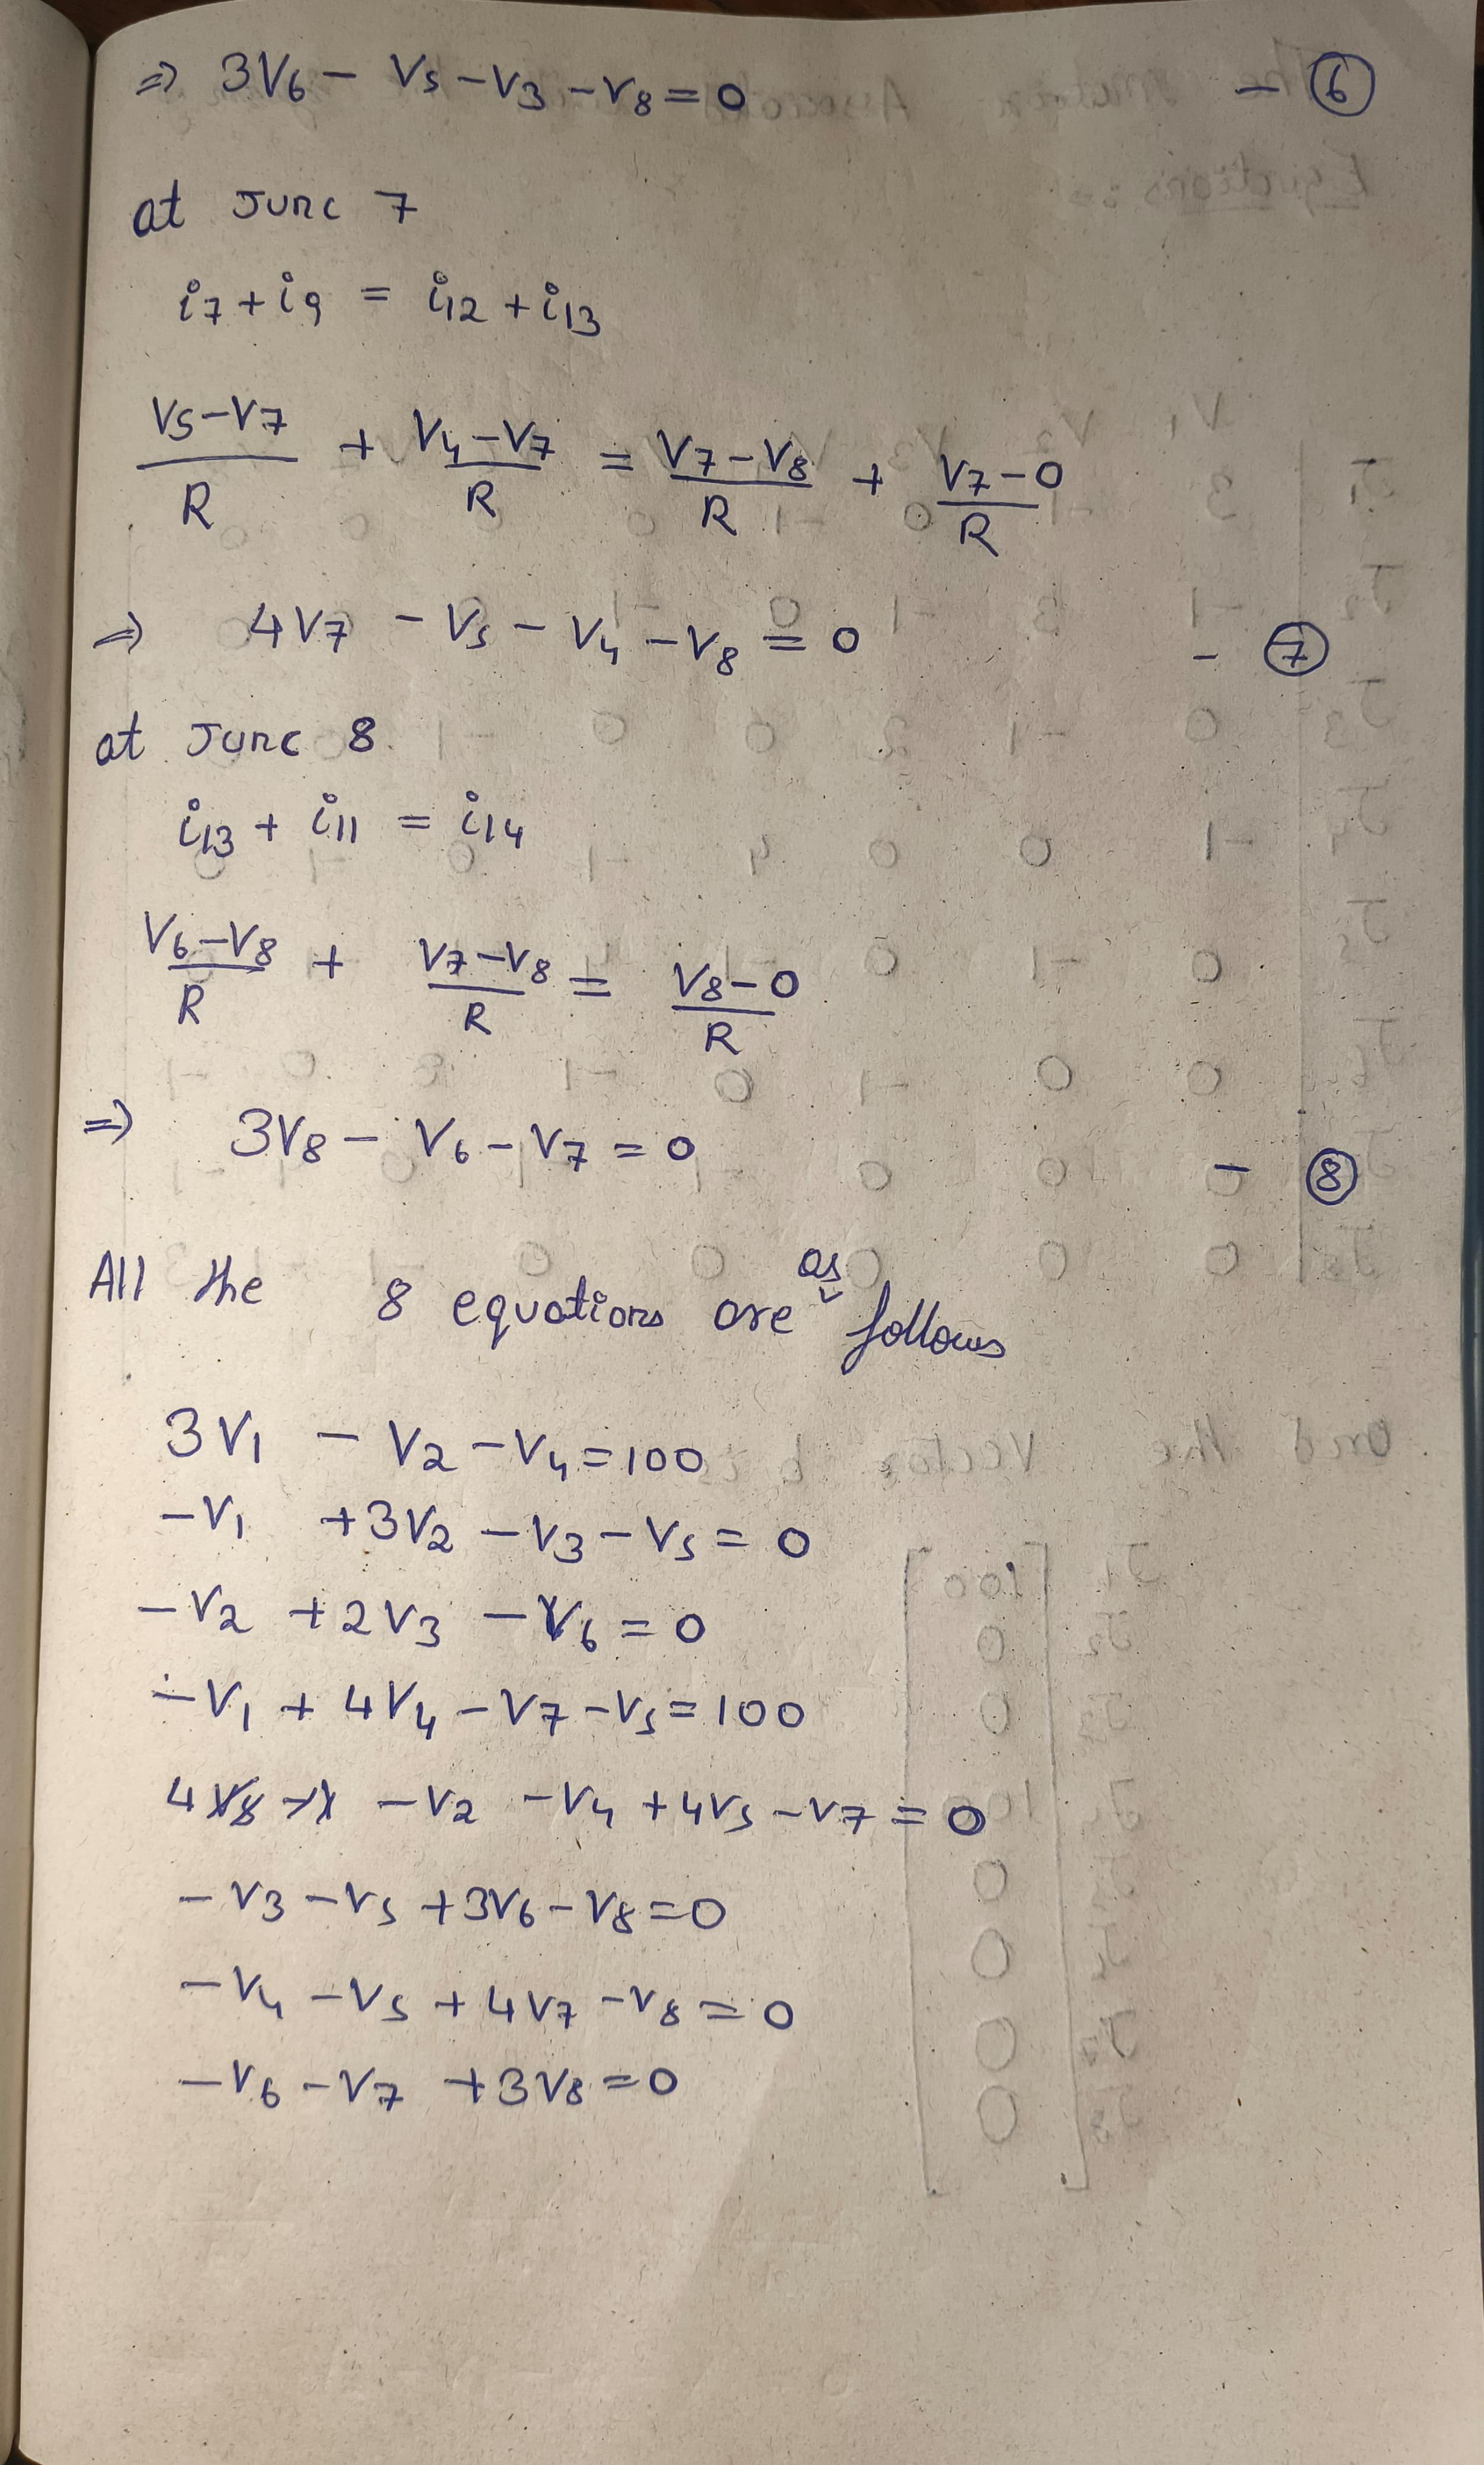 ⇒ 3V6 − V5 − V3 − V8 = 0 — ⑥
at Junc 7
i7 + i9 = i12 + i13
(V5 − V7)/R + (V4 − V7)/R = (V7 − V8)/R + (V7 − 0)/R
⇒ 4V7 − V5 − V4 − V8 = 0 — ⑦
at Junc 8
i13 + i11 = i14
(V6 − V8)/R + (V7 − V8)/R = (V8 − 0)/R
⇒ 3V8 − V6 − V7 = 0 — ⑧
All the 8 equations are as follows
3V1 − V2 − V4 = 100
−V1 + 3V2 − V3 − V5 = 0
−V2 + 2V3 − V6 = 0
−V1 + 4V4 − V7 − V5 = 100
4 − V2 − V4 + 4V5 − V7 = 0
−V3 − V5 + 3V6 − V8 = 0
−V4 − V5 + 4V7 − V8 = 0
−V6 − V7 + 3V8 = 0